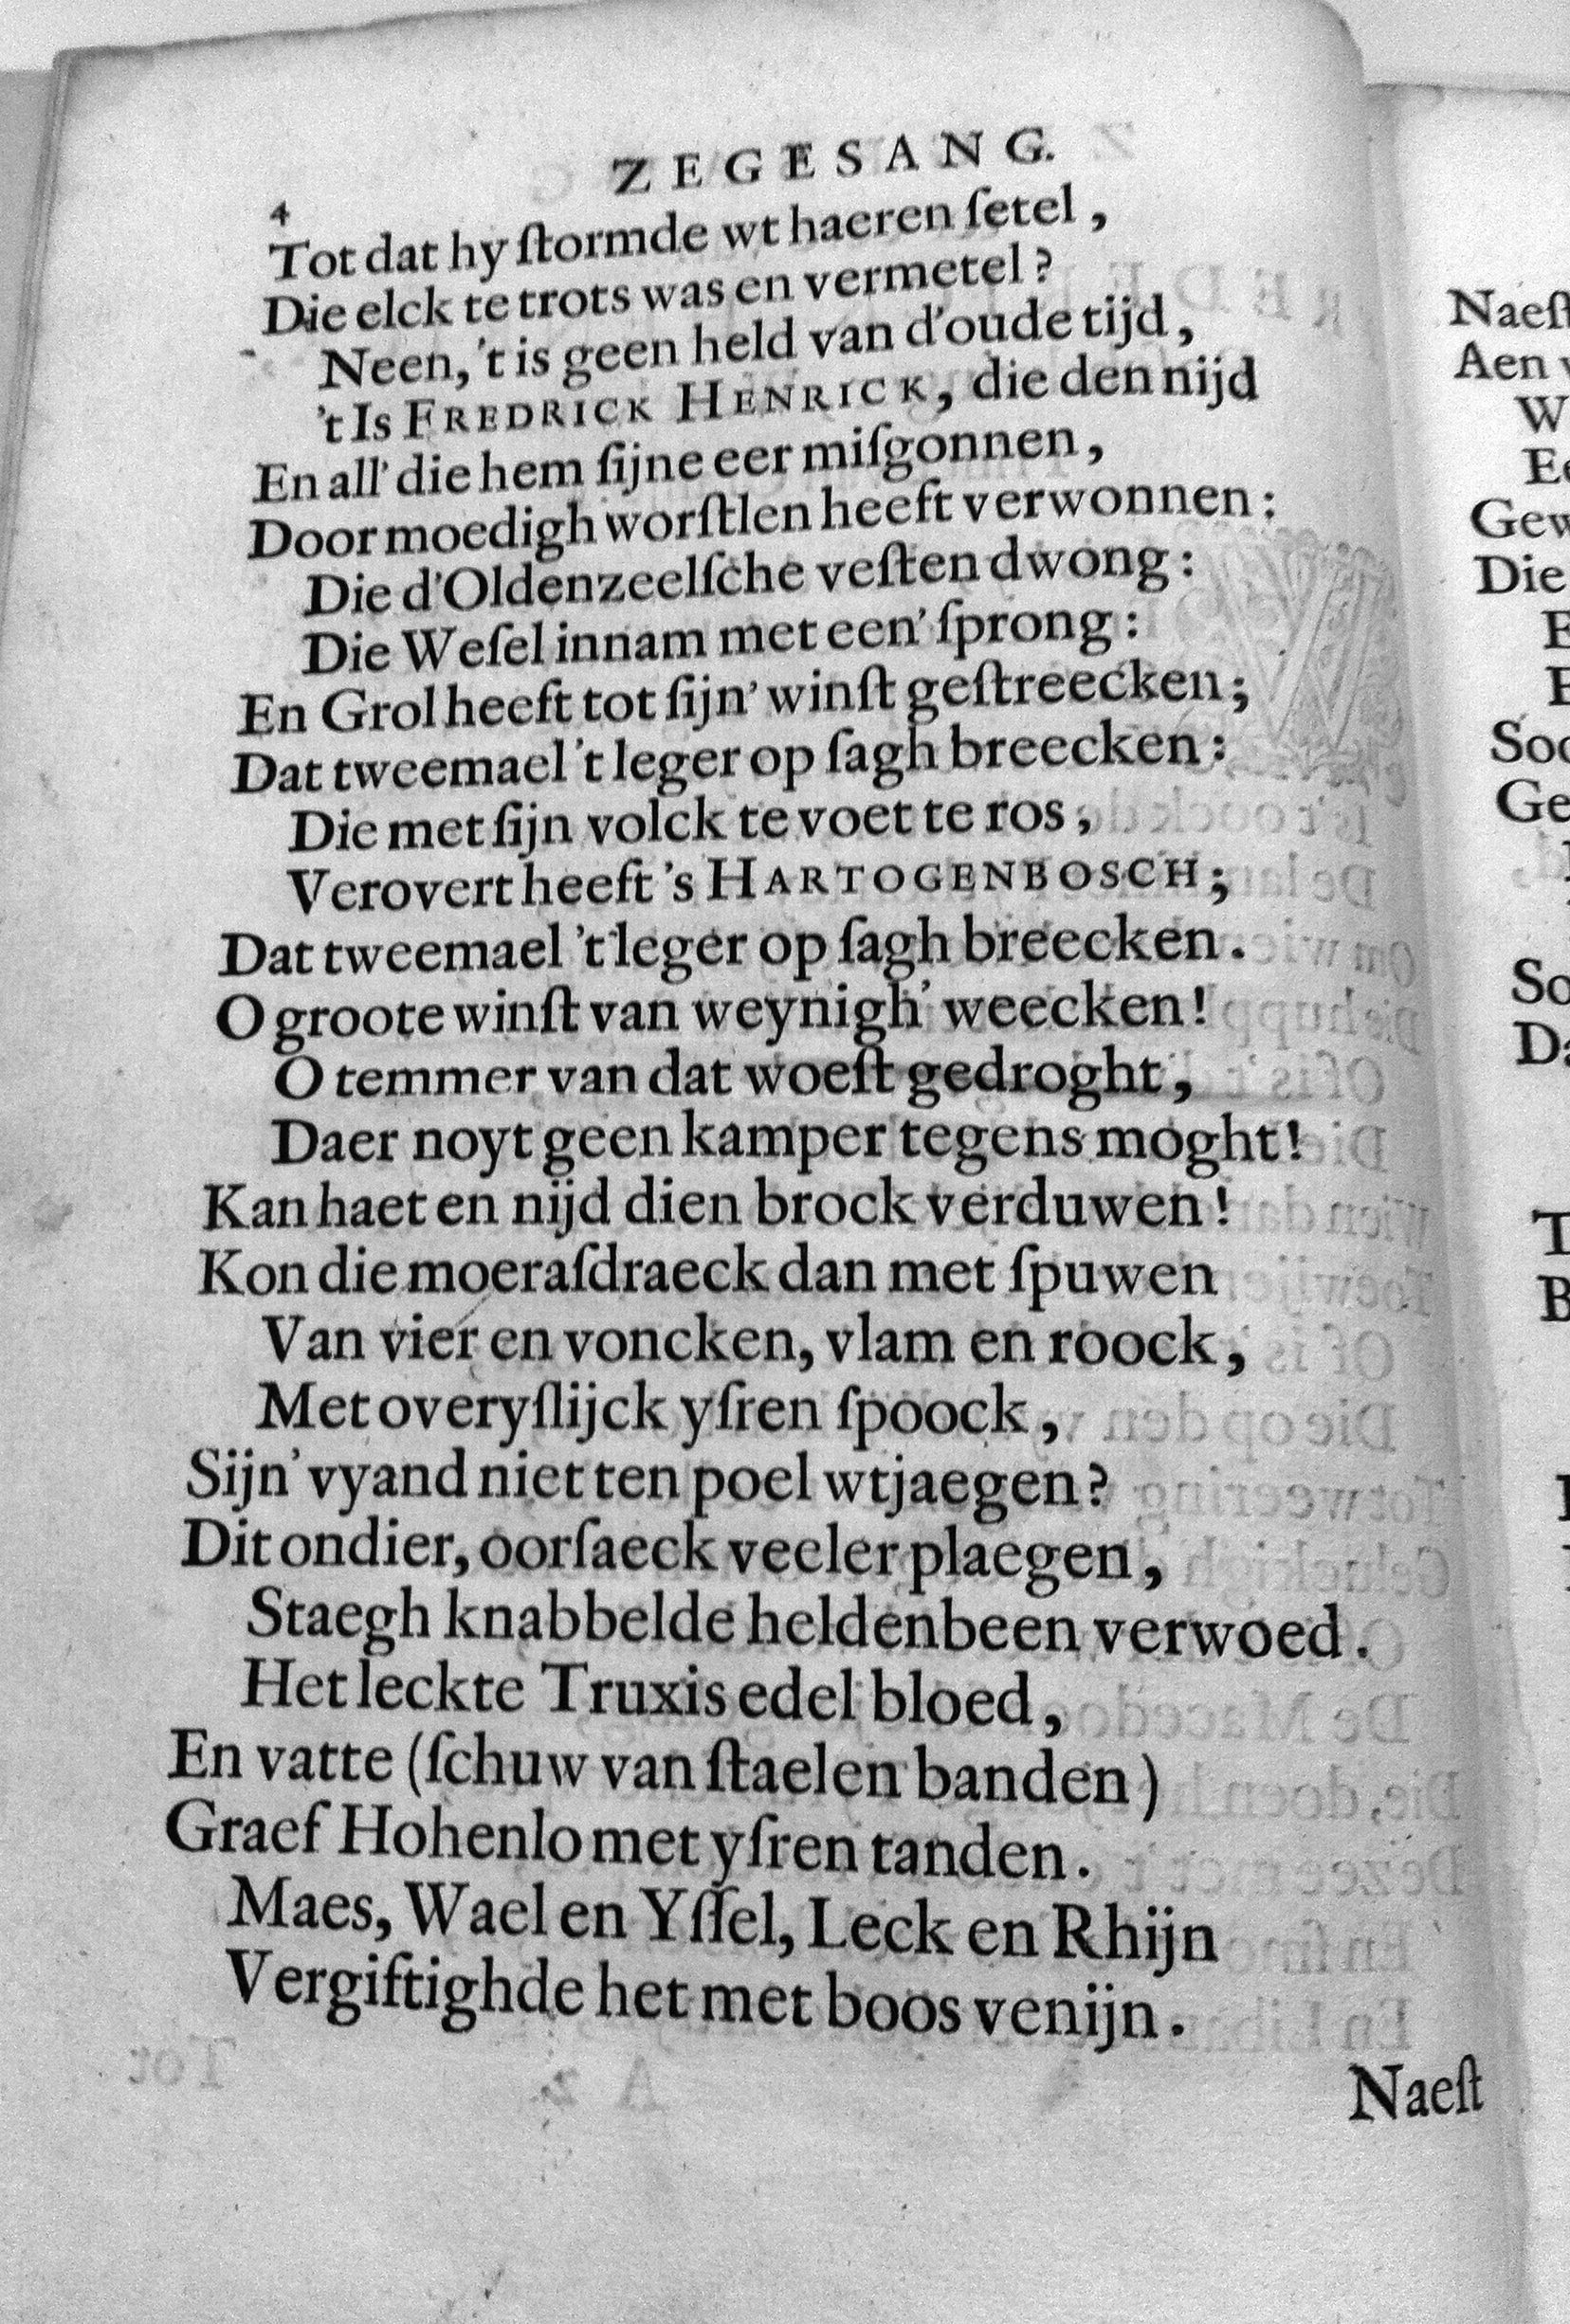 ZEGESANG.
4
Tot dat hy ſtormde wt haeren ſetel,
Die elck te trots was en vermetel?
Neen, 't is geen held van d'oude tijd,
't Is FREDRICK HENRICK, die den nijd
En all' die hem ſijne eer miſgonnen,
Door moedigh worſtlen heeft verwonnen:
Die d'Oldenzeelſche veſten dwong:
Die Weſel innam met een' ſprong:
En Grol heeft tot ſijn' winſt geſtreecken;
Dat tweemael 't leger op ſagh breecken:
Die met ſijn volck te voet te ros,
Verovert heeft 's HARTOGENBOSCH;
Dat tweemael 't leger op ſagh breecken.
O groote winſt van weynigh' weecken!
O temmer van dat woeſt gedroght,
Daer noyt geen kamper tegens moght!
Kan haet en nijd dien brock verduwen!
Kon die moeraſdraeck dan met ſpuwen
Van vier en voncken, vlam en roock,
Met overyſlijck yſren ſpoock,
Sijn' vyand niet ten poel wtjaegen?
Dit ondier, oorſaeck veeler plaegen,
Staegh knabbelde heldenbeen verwoed.
Het leckte Truxis edel bloed,
En vatte (ſchuw van ſtaelen banden)
Graef Hohenlo met yſren tanden.
Maes, Wael en Yſſel, Leck en Rhijn
Vergiftighde het met boos venijn.
Naeſt
Naeſt
Aen
Die